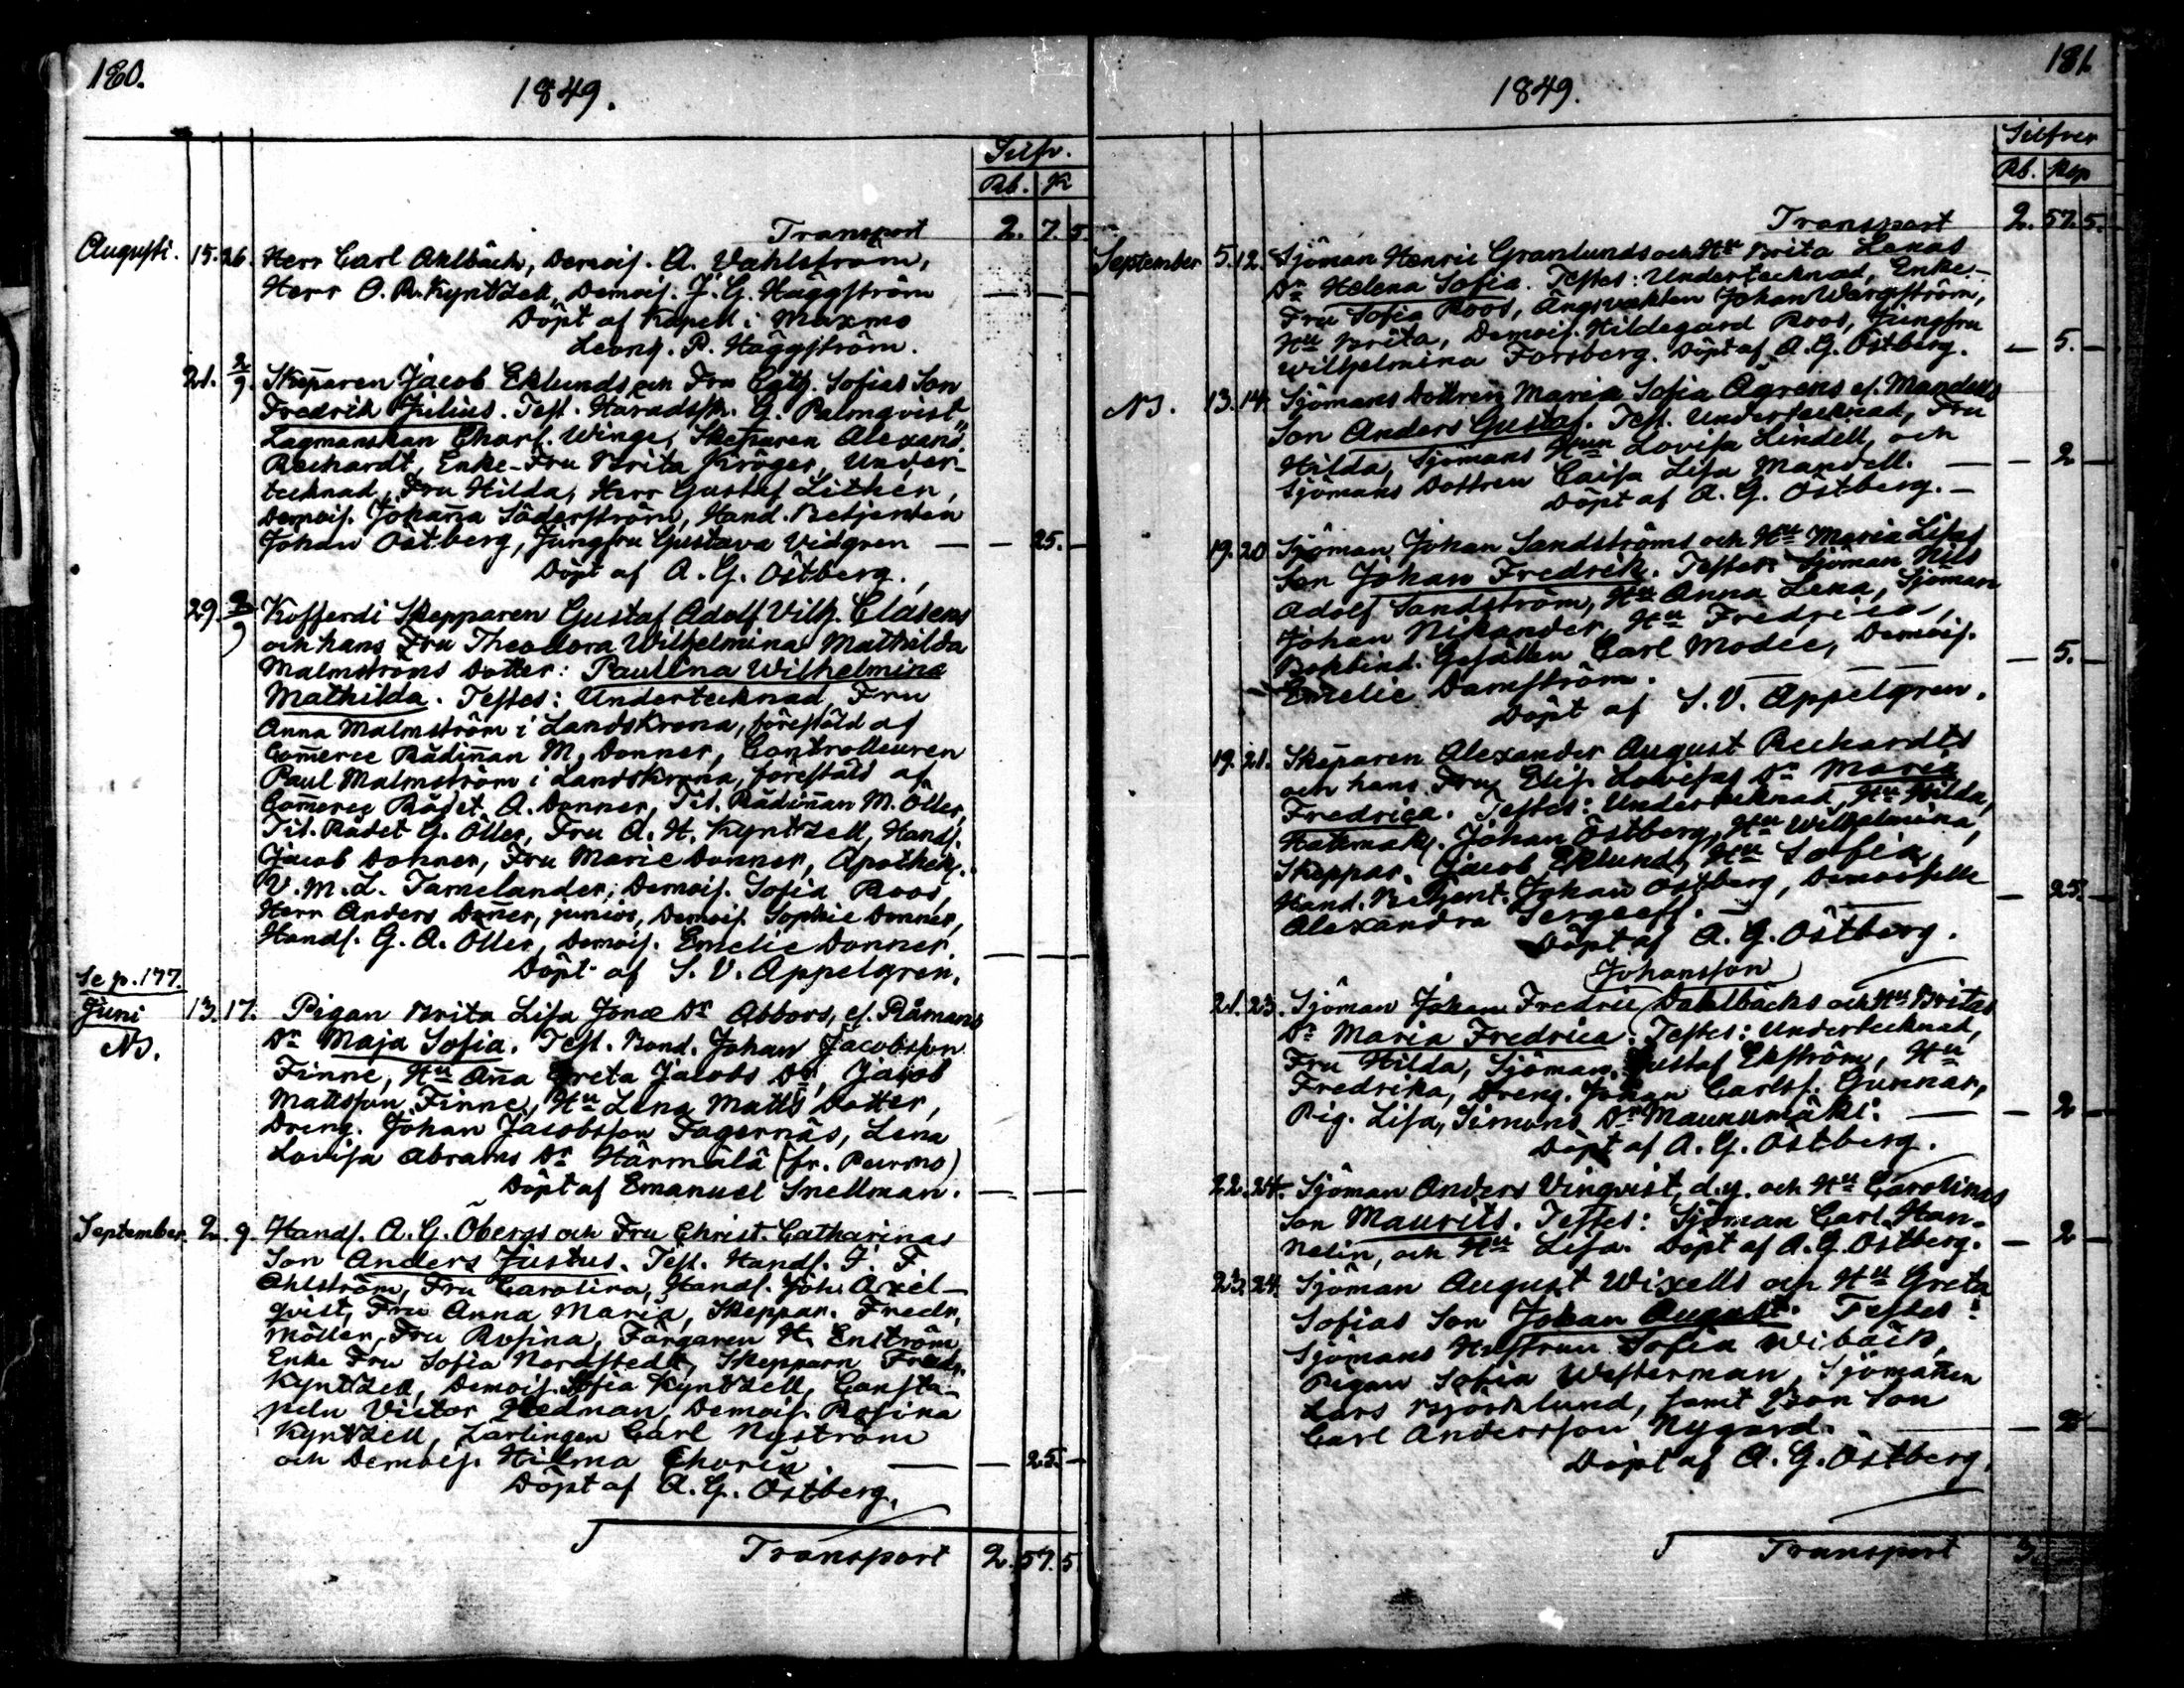 180.
1849.
Silfv.
Rb. K
Transport 2. 7. 5.
Augusti. 15. 26. Herr Carl Ahlbäck, Demois. A. Vahlström,
Herr O. R. Kyntzell, Demois. J. G. Häggström — — —
Döpt af Kapell. i Maxmo
Leonh. R. Häggström.
21. 2/9 Skeparen Jacob Eklunds och Fru Cath. Sofias Son
Fredrik Julius. Test. Häradssk. G. Palmqvist,
Lagmanskan Charl. Winge, Skeparen Alexand.
Rechardt, Enke-Fru Brita Kröger, Under-
tecknad, Fru Hilda, Herr Gustaf Lithén,
Demois. Johana Söderström, Hand. Betjenten
Johan Östberg, Jungfru Gustava Vidgren — — 25. —
Döpt af A. G. Östberg.
29. 2/9 Kofferdi Skepparen Gustaf Adolf Vilh. Clasens
och hans Fru Theodora Wilhelmina Mathilda
Malmströms Dotter: Paulina Wilhelmina
Mathilda. Testes: Undertecknad, Fru
Anna Malmström i Landskrona, föreståld af
Comerce Rådinan M. Donner, Controlleuren
Paul Malmström i Landskrona, förestäld af
Comerce Rådet A. Donner, Tit. Rådinan M. Öller,
Tit. Rådet G. Öller, Fru A. H. Kyntzell, Handl.
Jacob Donner, Fru Marie Donner, Apothek.
V. M. L. Tamelander, Demois. Sofia Roos,
Herr Anders Doner, junior, Demois. Sophie Donner,
Handl. G. A. Öller, Demois. Emelie Donner — — —
Döpt af S. V. Appelgren.
Se p. 177.
Juni 13. 17. Pigan Brita Lisa Jonæ Dr Abbors, ef. Råmans
NB. Dr Maja Sofia. Test. Bond. Johan Jacobsson
Finne, Hu Ana Greta Jacobs Dr, Jacob
Mattsson Finne, Hu Lena Matts Dotter,
Dreng. Johan Jacobsson Fagernäs, Lena
Lovisa Abrams Dr Härmälä (fr. Purmo)
Döpt af Emanuel Snellman. — — —
September 2. 9. Handl. A. G. Öbergs och Fru Christ. Catharinas
Son Anders Justus. Test. Handl. J. F.
Ahlström, Fru Carolina, Handl. Joh. Axel-
qvist, Fru Anna Maria, Skeppar. Fredr.
Möller, Fru Rosina, Färgaren H. Enström,
Enke Fru Sofia Nordstedt, Skepparn Fredr.
Kyntzell, Demois. Sofia Kyntzell, Consta-
peln Victor Hedman, Demois. Rosina
Kyntzell, Lärlingen Carl Nyström
och Demois. Hilma Chorin. — — 25. —
Döpt af A. G. Östberg.
Transport 2. 57. 5.
181.
1849.
Silfver
Rb. Kop
Transport 2. 57. 5.
September 5. 12. Sjöman Henric Granlunds och Hu Brita Lenas
Dr Helena Sofia. Testes: Undertecknad, Enke-
Fru Sofia Roos, Ängsvakten Johan Wargström,
Hu Brita, Demois. Hildegard Roos, Jungfru
Wilhelmina Forsberg. Döpt af A. G. Östberg. — 5. —
NB. 13. 14. Sjömans Dottren Maria Sofia Ågrens ef. Mandells
Son Anders Gustaf. Test. Undertecknad, Fru
Hilda, Sjömans Hun Lovisa Lindell, och
Sjömans Dottren Caisa Lisa Mandell. — — 2 —
Döpt af A. G. Östberg. —
19. 20 Sjöman Johan Sandströms och Hu Maria Lisas
Son Johan Fredrik. Testes: Sjöman Nils
Adolf Sandström, Hu Anna Lena, Sjöman
Johan Nikander, Hu Fredrica,
Bokbind. Gesällen Carl Modée, Demois.
Emelie Damström. — 5. —
Döpt af S. V. Appelgren.
19. 21. Skeparen Alexander August Rechardts
och hans Fru Elis. Lovisas Dr Maria
Fredrica. Testes: Undertecknad, Hu Hilda,
Hattmak. Johan Östberg, Hu Wilhelmina,
Skeppar. Jacob Eklund, Hu Sofia,
Hand. Betjent. Johan Östberg, Demoiselle
Alexandra Sergeeff. — — 25. —
Döpt af A. G. Östberg.
Johansson
21. 23. Sjöman Johan Fredric Dahlbäcks och Hu Britas
Dr Maria Fredrica. Testes: Undertecknad,
Fru Hilda, Sjöman Gustaf Ekström, Hu
Fredrika, Dreng. Johan Carlss. Gunnar,
Pig. Lisa, Simons Dr Maunumäki. — — 2 —
Döpt af A. G. Östberg.
22. 24. Sjöman Anders Vinqvist, d.y. och Hu Carolinas
Son Maurits. Testes: Sjöman Carl Han-
nelin, och Hu Lisa. Döpt af A. G. Östberg. — 2 —
23. 24. Sjöman August Wixells och Hu Greta
Sofias Son Johan August. Testes:
Sjömans Hustrun Sofia Wibäck,
Pigan Sofia Westerman, Sjömannen
Lars Björklund, samt Bon. Son
Carl Andersson Nygård. — — 2
Döpt af A. G. Östberg.
Transport 3.